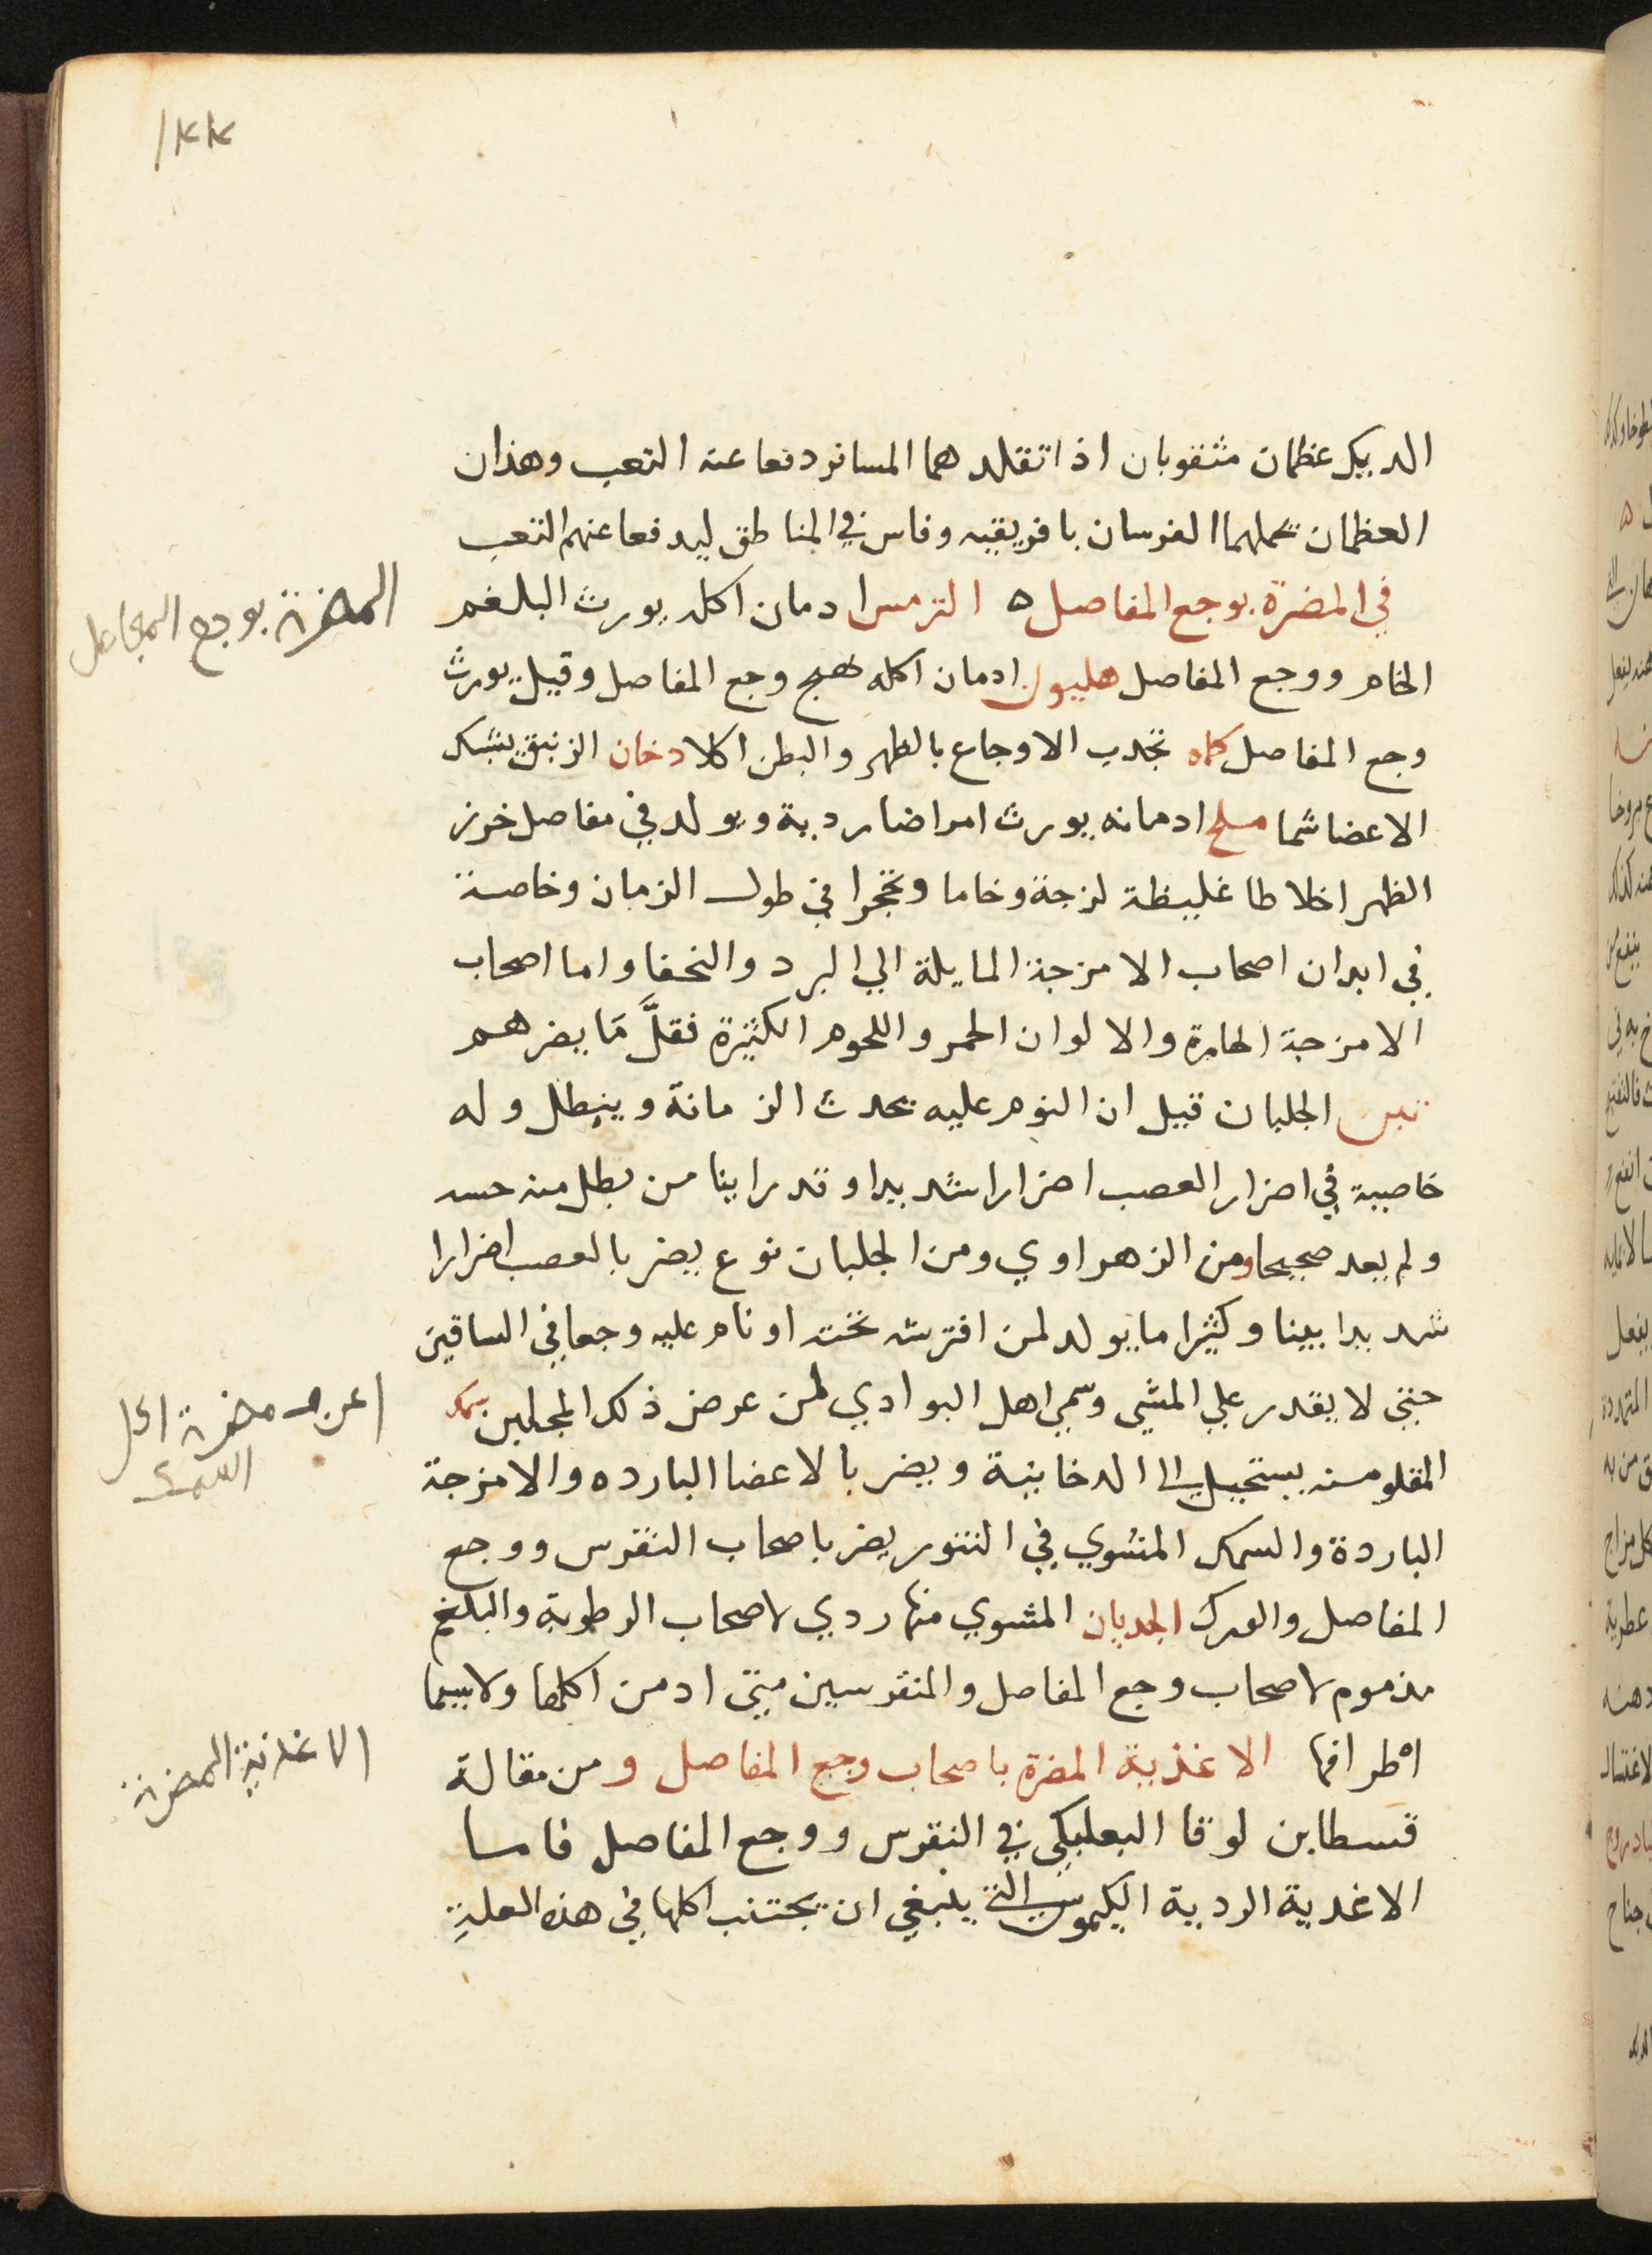 ١٨٨
الديك عظمان مثقوبان اذا تقلدهما المسافر دفعا عنه التعب وهذان
العظمان يحملهما الفرسان بافريقيه وفاس في المناطق ليدفعا عنهم التعب
في المضرة بوجع المفاصل ه الترمس ادمان اكله يورث البلغم
المضرة بوجع المفاصل
الخام ووجع المفاصل هليون ادمان اكله يهيج وجع المفاصل وقيل يورث
وجع المفاصل كماه تجذب الاوجاع بالظهر والبطن اكلا دخان الزنبق
الاعضا شما ادمانه يورث امراضا ردية ويولد في مفاصل خرز
الظهر اخلاطا غليظة لزجة وخاما وتحجرا في طول الزمان وخاصة
في ابدان اصحاب الامزجة المايلة الي البرد والنحفا واما اصحاب
الامزجة الحارة والالوان الحمر واللحوم الكثيرة فقلَّ مَا يضرهم
تبن الجلبان قيل ان النوم عليه يحدث الزمانة ويبطل وله
خاصية في اضرار العصب اضرارا شديدا وقد راينا من بطل منه حسه
ولم يعد صحيحا ومن الزهراوي ومن الجلبان نوع يضر بالعصب اضرارا
شديدا بينا وكثيرا ما يولد لمن افترشه تحته او نام عليه وجعا في الساقين
حتي لا يقدر علي المشي وسمي اهل البوادي لمن عرض ذلك المجلبن سمك
اعرف مضرة اكل
السمك
المقلو منه يستحيل الى الدخانية ويضر بالاعضا البارده والامزجة
الباردة والسمك المشوي في التنور يضر باصحاب النقرس ووجع
المفاصل والورك الجديان المشوي منها ردي لاصحاب الرطوبة والبلغم
مذموم لاصحاب وجع المفاصل والمنقرسين متى ادمن اكلها ولاسيما
اطرافها الاغذية المضرة باصحاب وجع المفاصل ومن مقالة
الاغذية المضرة
قسطا بن لوقا البعلبكي في النقرس ووجع المفاصل فاما
الاغدية الردية الكيموس التي ينبغي ان يجتنب اكلها في هذه العلةِ